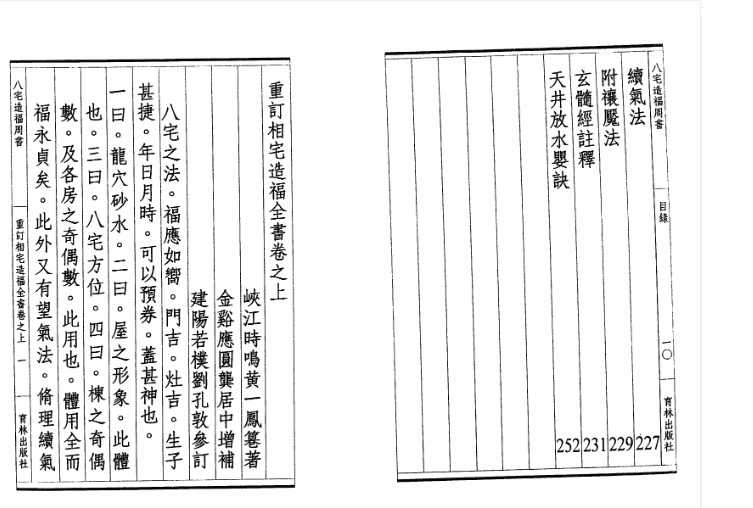 八宅造福周書
目錄
一〇
育林出版社
續氣法 227
附禳魘法 229
玄髓經註釋 231
天井放水嬰訣 252
重訂相宅造福全書卷之上
峽江時鳴黄一鳳篹著
金谿應圓龔居中增補
建陽若樸劉孔敦參訂
八宅之法。福應如嚮。門吉。灶吉。生子
甚捷。年日月時。可以預券。蓋甚神也。
一曰。龍穴砂水。二曰。屋之形象。此體
也。三曰。八宅方位。四曰。棟之奇偶
數。及各房之奇偶數。此用也。體用全而
福永貞矣。此外又有望氣法。脩理續氣
八宅造福周書
重訂相宅造福全書卷之上
一
育林出版社